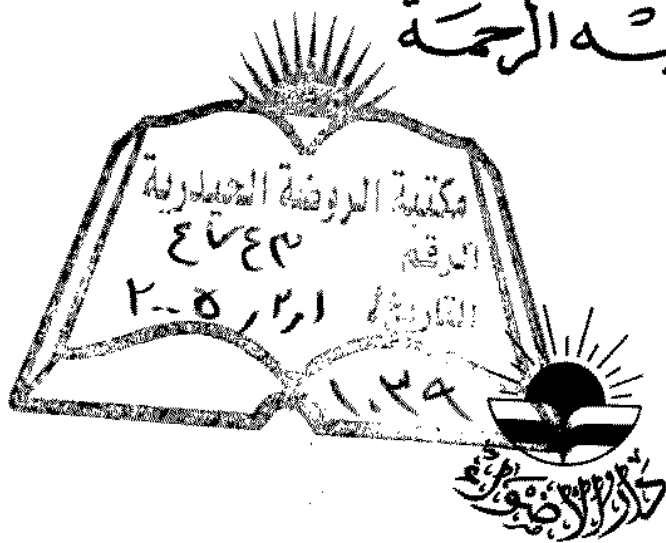 الرحمة
مكتبة الروضة الحيدرية
الرقم ٤٧٤٣
التاريخ ١,٢,٢٠٠٥
١٠٣٩
دار الأضواء